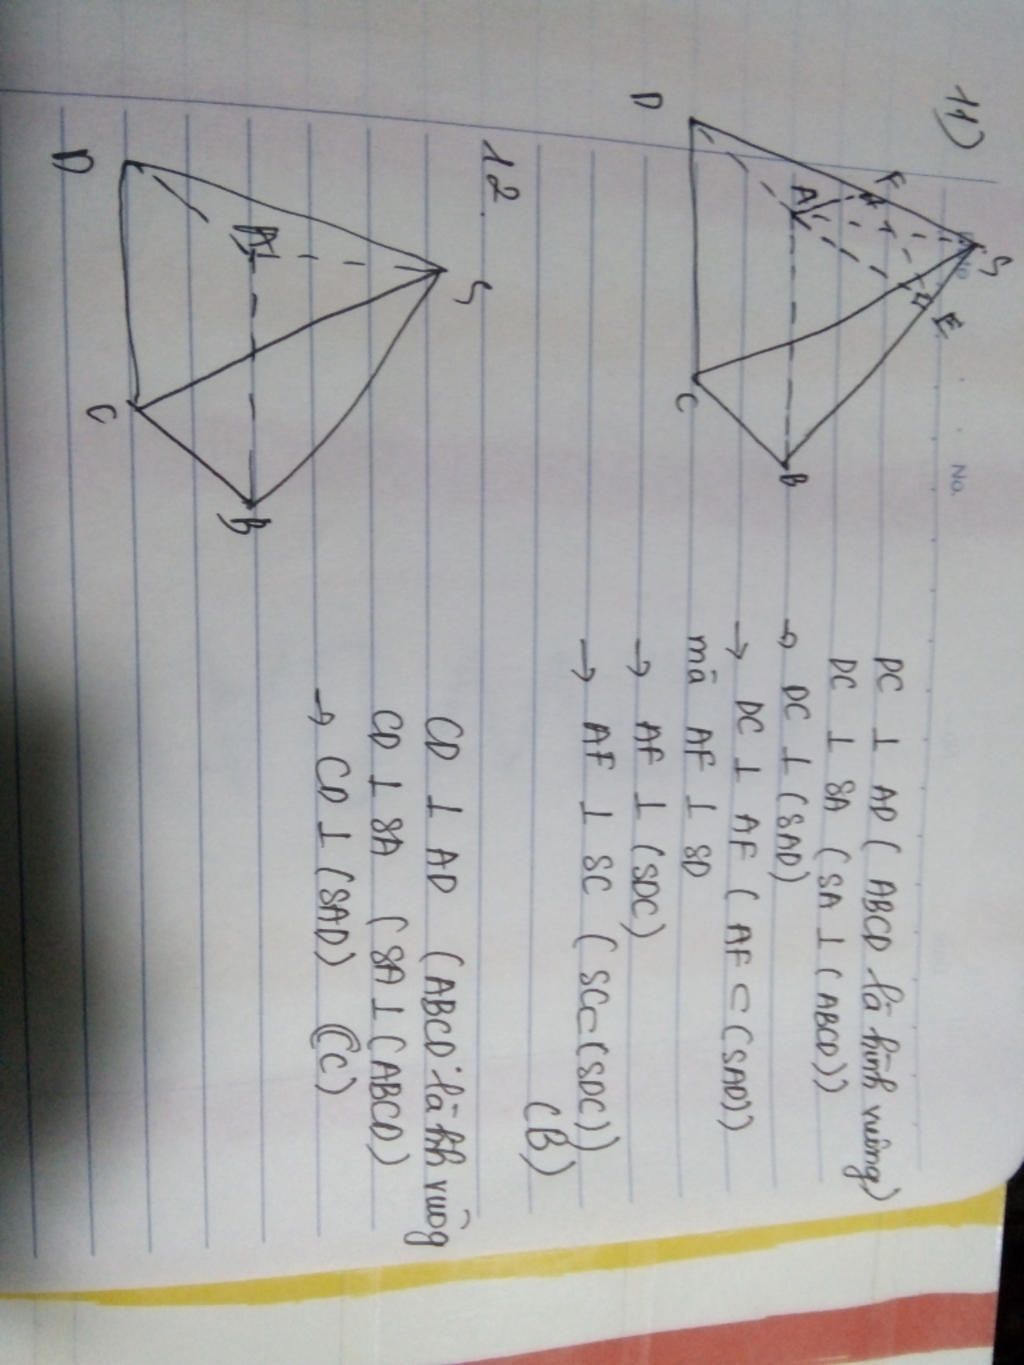 No.
11)
S
F
E
A
D
C
B
DC ⊥ AD ( ABCD là hình vuông)
DC ⊥ SA ( SA ⊥ ( ABCD))
→ DC ⊥ (SAD)
→ DC ⊥ AF ( AF ⊂ (SAD))
mà AF ⊥ SD
→ AF ⊥ (SDC)
→ AF ⊥ SC ( SC⊂(SDC))
(B)
12.
S
A
D
C
B
CD ⊥ AD (ABCD là hh vuông
CD ⊥ SA ( SA ⊥ (ABCD)
→ CD ⊥ (SAD) (C)